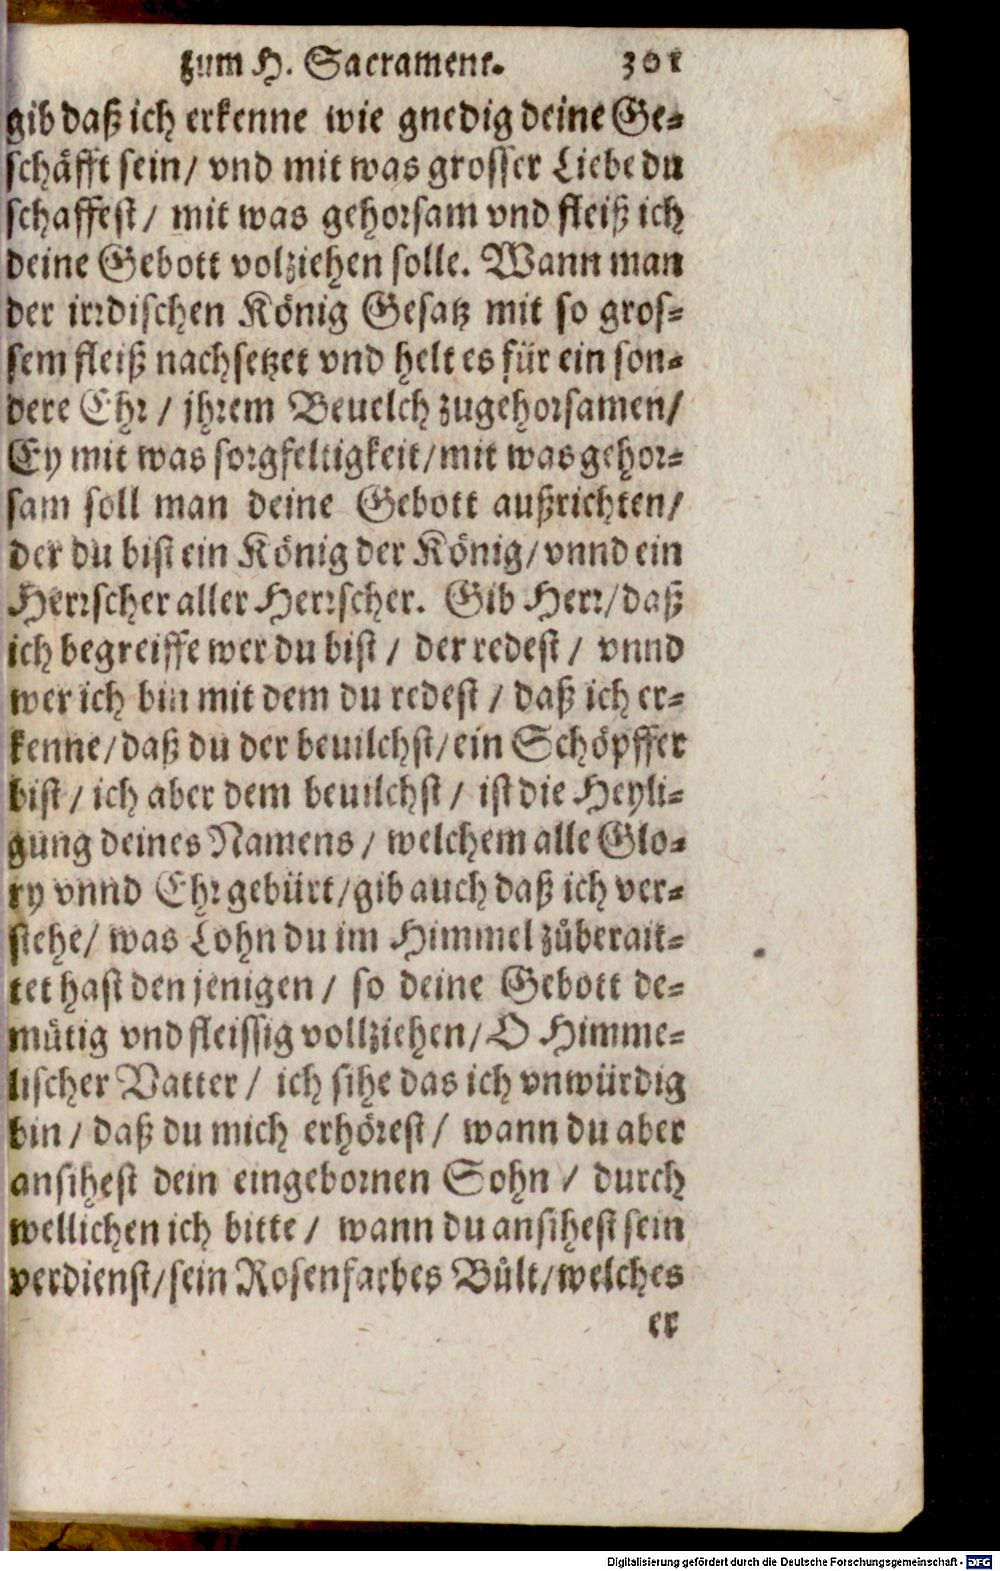 zum H. Sacrament. 301
gib daß ich erkenne wie gnedig deine Ge-
schäfft sein/ vnd mit was grosser Liebe du
schaffest/ mit was gehorsam vnd fleiß ich
deine Gebott volziehen solle. Wann man
der irrdischen König Gesatz mit so gros-
sem fleiß nachsetzet vnd helt es für ein son-
dere Ehr / jhrem Beuelch zugehorsamen/
Ey mit was sorgfeltigkeit/mit was gehor-
sam soll man deine Gebott außrichten/
der du bist ein König der König/vnnd ein
Herrscher aller Herrscher. Gib Herr/daß
ich begreiffe wer du bist / der redest / vnnd
wer ich bin mit dem du redest / daß ich er-
kenne/daß du der beuilchst/ein Schöpffer
bist / ich aber dem beuilchst / ist die Heyli-
gung deines Namens / welchem alle Glo-
ry vnnd Ehr gebürt/gib auch daß ich ver-
stehe/ was Lohn du im Himmel züberait-
tet hast den jenigen / so deine Gebott de-
mütig vnd fleissig vollziehen/O Himme-
lischer Vatter / ich sihe das ich vnwürdig
bin / daß du mich erhörest/ wann du aber
ansihest dein eingebornen Sohn / durch
wellichen ich bitte / wann du ansihest sein
verdienst/sein Rosenfarbes Bült/welches
er
Digitalisierung gefördert durch die Deutsche Forschungsgemeinschaft - DFG